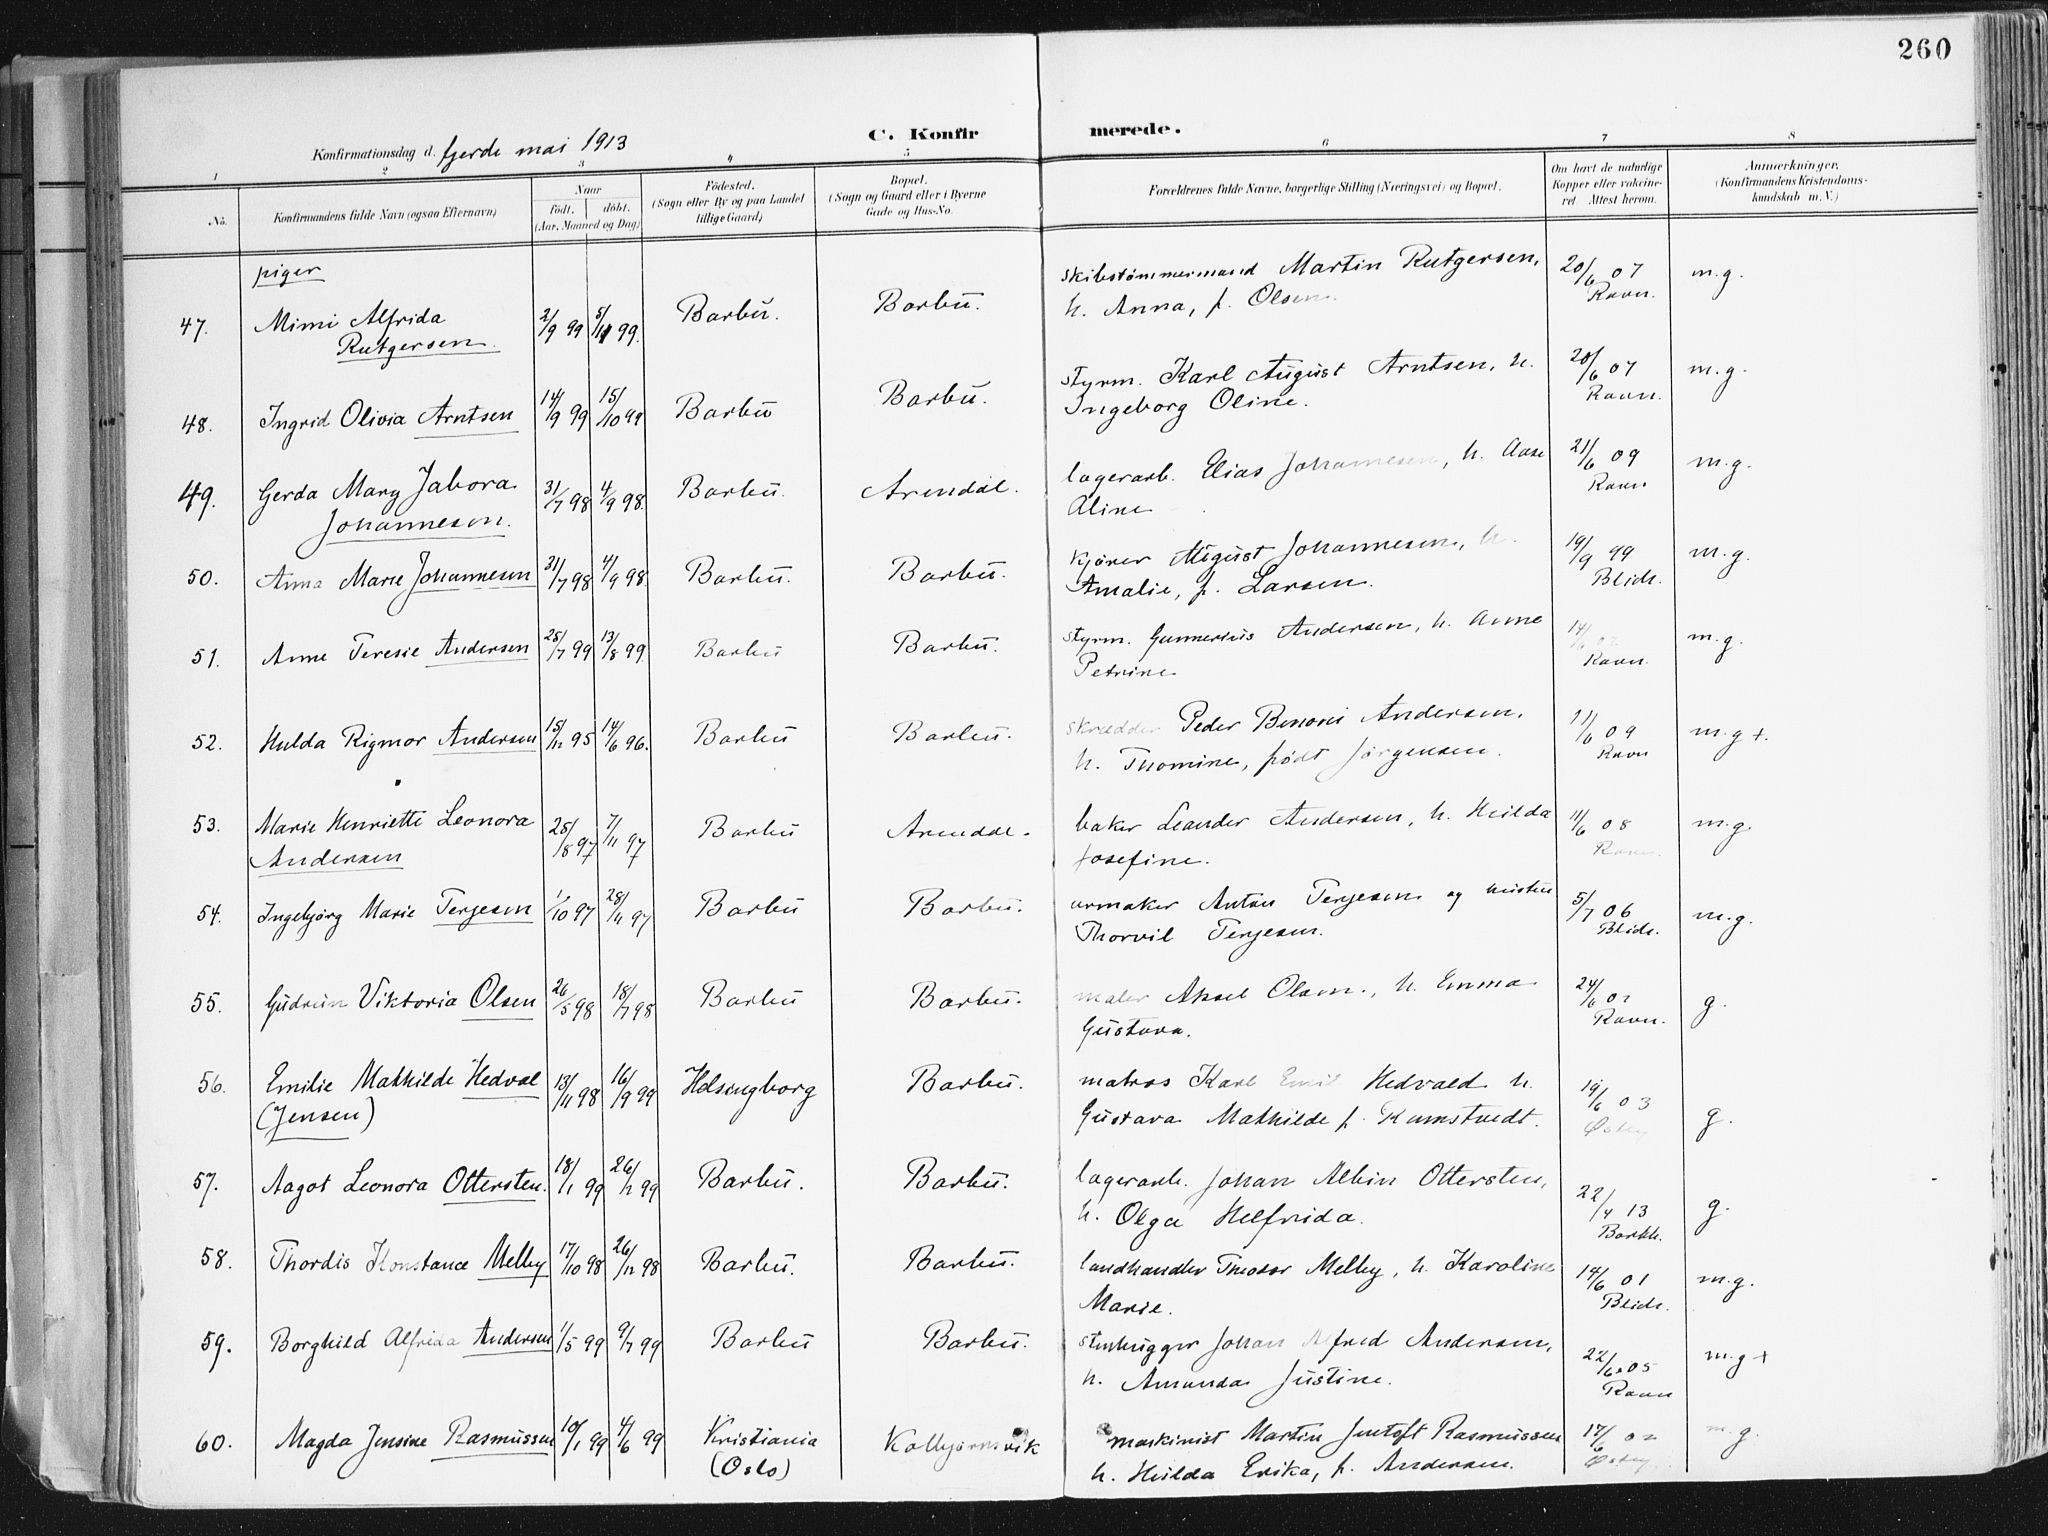 260
C. Konfirmerede.
Konfirmationsdag d. fjerde mai 1913
1 2 3 4 5 6 7 8
No. Konfirmandens fulde Navn (ogsaa Efternavn) Naar født. døbt. (Aar, Maaned og Dag) Fødested. (Sogn eller By og paa Landet tillige Gaard) Bopæl. (Sogn og Gaard eller i Byerne Gade og Hus-No. Forældrenes fulde Navne, borgerlige Stilling (Næringsvei) og Bopæl. Om havt de naturlige Kopper eller vakcineret. Attest herom. Anmærkninger. (Konfirmandens Kristendomskundskab m. V.)
piger
47. Mimi Alfrida Rutgersen 2/9 99 5/11 99. Barbu. Barbu. skibstømmermand Martin Rutgersen, h. Anna, f. Olsen. 20/6 07 Ravn. m.g.
48. Ingrid Olivia Arntsen 14/9 99 15/10 99 Barbu Barbu. styrm. Karl August Arntsen, h. Ingeborg Oline. 20/6 07 Ravn. m.g.
49. Gerda Mary Jabora Johannesen. 31/7 98 4/9 98. Barbu. Arendal. lagerarb. Elias Johannesen, h. Aase Aline 21/6 09 Ravn m.g.
50. Anna Marie Johannesen 31/7 98 4/9 98 Barbu. Barbu. kjører August Johannesen, h. Amalie, f. Larsen. 19/9 99 Blidr. m.g.
51. Anne Teresie Andersen 25/7 99 13/8 99. Barbu Barbu. styrm. Gunnerius Andersen, h. Anne Petrine 14/6 Ravn. m.g.
52. Hulda Rigmor Andersen 15/12 95 14/6 96. Barbu Barbu. skrædder Peder Benoni Andersen, h. Thomine, født Jørgensen. 11/6 09 Ravn m.g +.
53. Marie Henriette Leonora Andersen 25/8 97 7/11 97 Barbu Arendal. baker Leander Andersen, h. Hilda Josefine. 11/6 08 Ravn. m.g
54. Ingebjørg Marie Terjesen 1/10 97 28/11 97 Barbu Barbu. urmaker Anton Terjesen og hustru Thorvil Terjesen. 5/7 06 Blidr. m.g.
55. Gudrun Viktoria Olsen 26/5 98 18/7 98 Barbu Barbu. maler Aksel Olsen., h. Emma Gustava. 24/6 Ravn. g.
56. Emilie Mathilde Hedval (Jensen) 13/11 98 16/9 99 Helsingborg Barbu. matros Karl Emil Hedvald h. Gustava Mathilde f. 19/6 03 g.
57. Aagot Leonora Ottersten. 18/1 99 26/12 99 Barbu. Barbu. lagerarb. Johan Albin Ottersten, h. Olga Helfrida. 22/4 13 g.
58. Thordis Konstance Melby 17/10 98 26/12 98 Barbu. Barbu. landhandler Theodor Melby, h. Karoline Marie. 14/6 01 Blidr. m.g.
59. Borghild Alfrida Andersen 1/5 99 9/7 99 Barbu Barbu. stenhugger Johan Alfred Andersen, h. Amanda Justine. 22/6 05 Ravn m.g +
60. Magda Jensine Rasmussen 10/1 99 4/6 99 Kristiania (Oslo) Kolbjørnsvik maskinist Martin Jentoft Rasmussen h. Hilda Erika, f. Andersen. 17/6 02 m.g.